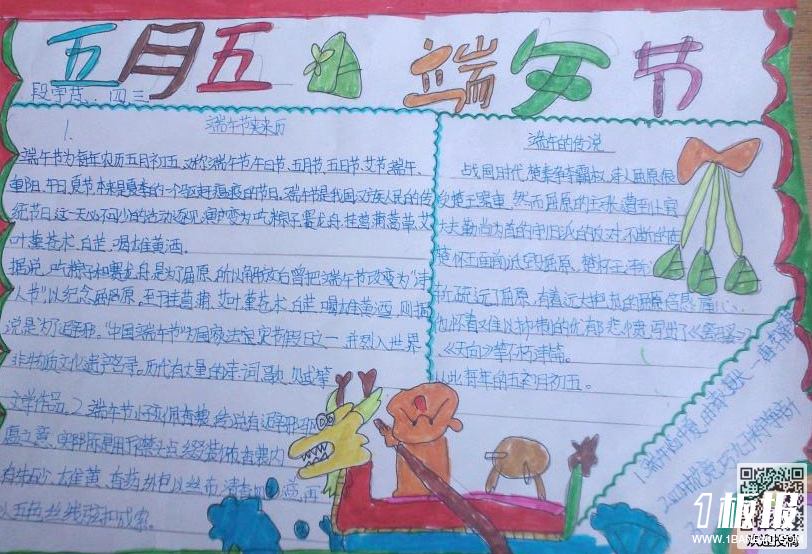 五月五 端午节
段宇芹 四三
1.
端午节的来历
端午节为每年农历五月初五,又称端阳节、午日节、五月节、五日节、艾节、端午、
重阳、午日、夏节,本来是夏季的一个驱除瘟疫的节日。端午节是我国汉族人民的传
统节日,这一天必不可少的活动逐渐演变为吃粽子,赛龙舟,挂菖蒲、蒿草、艾
叶,薰苍术、白芷,喝雄黄酒。
据说,吃粽子和赛龙舟,是为了屈原,所以解放后曾把端午节改变为“诗
人节”,以纪念屈原。至于挂菖蒲、艾叶,薰苍术、白芷,喝雄黄酒,则据
说是为了避邪。“中国端午节”为国家法定节假日之一,并列入世界
非物质文化遗产名录。历代有大量的诗、词、歌、赋等
文学作品。2.端午节小孩佩香囊,传说有避邪驱
有朱砂、雄黄、香药,外包以丝布,清香
以五色丝线弦扣成索。
端午的传说
战国时代,楚秦争夺霸权,诗人屈原很
受楚王器重,然而屈原的主张遭到上官
大夫靳尚为首的守旧派的反对,不断的在
楚怀王面前诋毁屈原,楚怀王
疏远了屈原,有着远大抱负的屈原倍感
怀着难以抑制的忧郁悲愤,写出了《离骚》、
《天问》等不朽诗篇。
从此每年的五月初五。
1板报
WWW.1BANBAO.COM
欢迎投稿